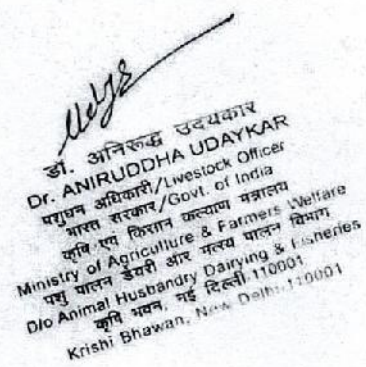 डॉ. अनिरूद्ध उदयकार
Dr. ANIRUDDHA UDAYKAR
पशुधन अधिकारी/Livestock Officer
भारत सरकार/Govt. of India
कृषि एवं किसान कल्याण मन्त्रालय
Ministry of Agriculture & Farmers Welfare
पशु पालन डेयरी और मत्स्य पालन विभाग
D/o Animal Husbandry Dairying & Fisheries
कृषि भवन, नई दिल्ली-110001
Krishi Bhawan, New Delhi-110001